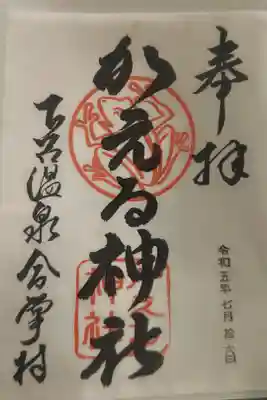 奉拝
令和五年七月拾六日
加元る神社
下呂温泉合掌村